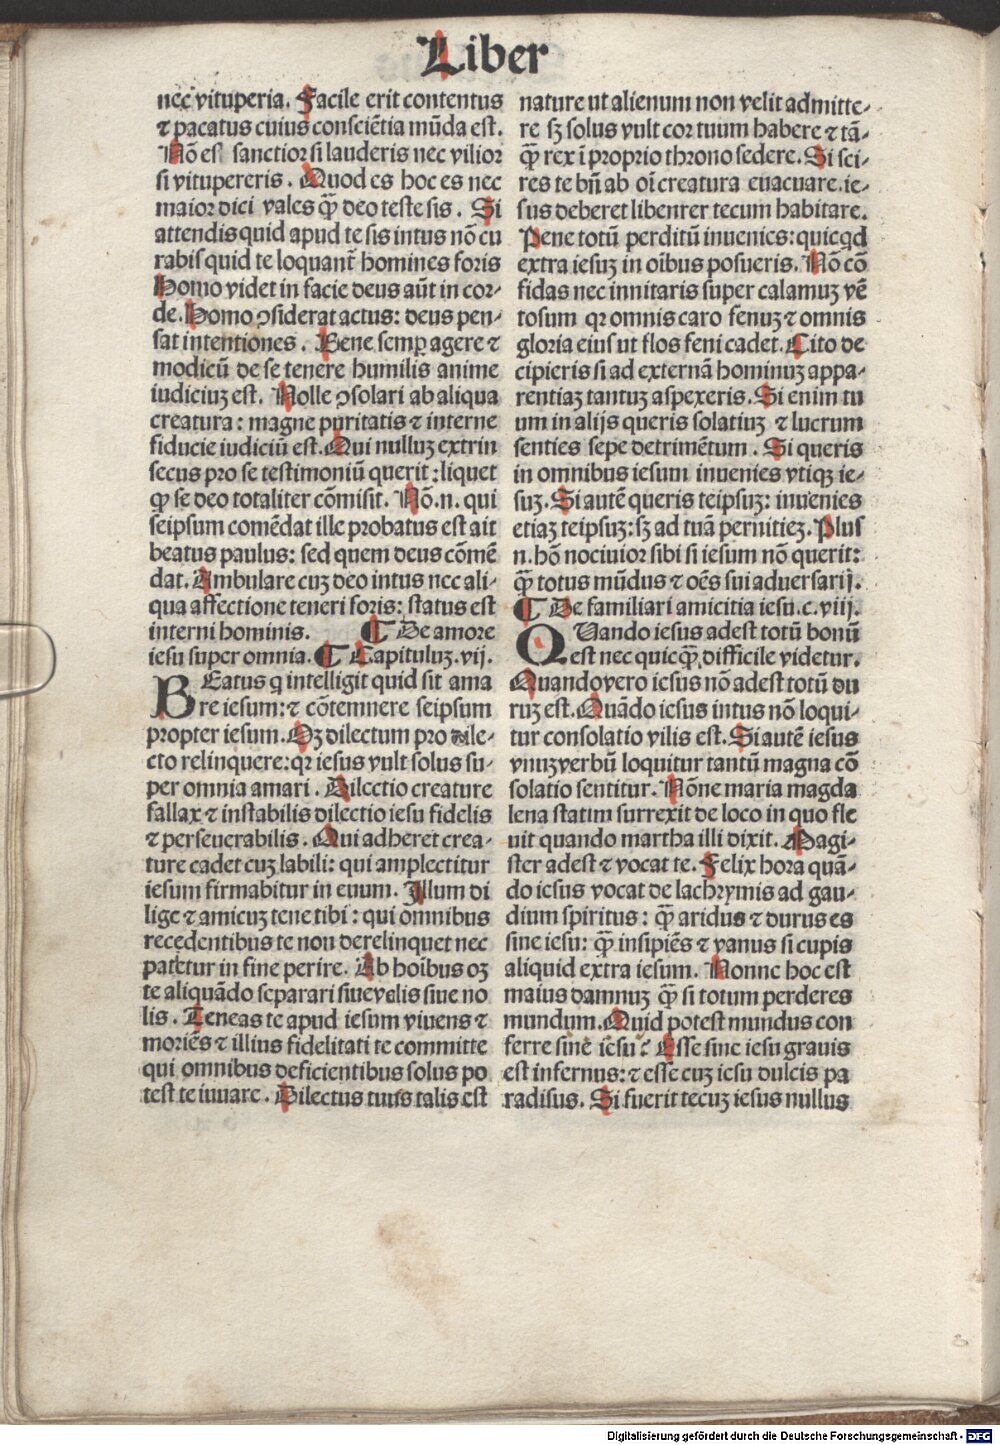 Liber
nec vituperia. Facile erit contentus
⁊ pacatus cuius consciẽtia mũda est.
Nõ es sanctior si lauderis nec vilior
si vitupereris. Quod es hoc es nec
maior dici vales qȝ̃ deo teste sis. Si
attendis quid apud te sis intus nõ cu
rabis quid te loquant̃ homines foris
Homo videt in facie deus aũt in cor-
de. Homo ꝯsiderat actus: deus pen-
sat intentiones. Bene semꝑ agere ⁊
modicũ de se tenere humilis anime
iudiciuȝ est. Nolle ꝯsolari ab aliqua
creatura: magne puritatis ⁊ interne
fiducie iudiciũ est. Qui nulluȝ extrin
secus pro se testimoniũ querit: liquet
ꝙ se deo totaliter cõmisit. Nõ .n. qui
seipsum comẽdat ille probatus est ait
beatus paulus: sed quem deus cõmẽ
dat. Ambulare cuȝ deo intus nec ali-
qua affectione teneri foris: status est
interni hominis. ¶ De amore
iesu super omnia. ¶ Capituluȝ .vij.
BEatus q intelligit quid sit ama
re iesum: ⁊ cõtemnere seipsum
propter iesum. Oȝ dilectum pro dile-
cto relinquere: qꝛ iesus vult solus su-
per omnia amari. Dilectio creature
fallax ⁊ instabilis dilectio iesu fidelis
⁊ perseuerabilis. Qui adheret crea-
ture cadet cuȝ labili: qui amplectitur
iesum firmabitur in euum. Illum di
lige ⁊ amicuȝ tene tibi: qui omnibus
recedentibus te non derelinquet nec
patetur in fine perire. Ab hoĩbus oȝ
te aliquãdo separari siue velis siue no
lis. Teneas te apud iesum viuens ⁊
moriẽs ⁊ illius fidelitati te committe
qui omnibus deficientibus solus po
test te iuuare. Dilectus tuus talis est
nature ut alienum non velit admitte-
re sȝ solus vult cor tuum habere ⁊ tã-
qȝ̃ rex ĩ proprio throno sedere. Si sci-
res te bñ ab oĩ creatura euacuare. ie-
sus deberet libenrer tecum habitare.
Pene totũ perditũ inuenies: quicqd
extra iesuȝ in oĩbus posueris. Nõ cõ
fidas nec innitaris super calamuȝ vẽ
tosum qꝛ omnis caro fenuȝ ⁊ omnis
gloria eius ut flos feni cadet. Cito de
cipieris si ad externã hominuȝ appa-
rentiaȝ tantuȝ aspexeris. Si enim tu
um in alijs queris solatiuȝ ⁊ lucrum
senties sepe detrimẽtum. Si queris
in omnibus iesum inuenies vtiqȝ ie-
suȝ. Si autẽ queris teipsuȝ: inuenies
etiaȝ teipsuȝ: sȝ ad tuã pernitieȝ. Plus
.n. hõ nociuior sibi si iesum nõ querit:
qȝ̃ totus mũdus ⁊ oẽs sui aduersarij.
¶ De familiari amicitia iesu. c. viij.
QUando iesus adest totũ bonũ
est nec quicqȝ̃ difficile videtur.
Quando vero iesus nõ adest totũ du
ruȝ est. Quãdo iesus intus nõ loqui-
tur consolatio vilis est. Si autẽ iesus
vnuȝ verbũ loquitur tantũ magna cõ
solatio sentitur. Nõne maria magda
lena statim surrexit de loco in quo fle
uit quando martha illi dixit. Magi-
ster adest ⁊ vocat te. Felix hora quã-
do iesus vocat de lachrymis ad gau-
dium spiritus: qȝ̃ aridus ⁊ durus es
sine iesu: qȝ̃ insipiẽs ⁊ vanus si cupis
aliquid extra iesum. Nonne hoc est
maius damnuȝ qȝ̃ si totum perderes
mundum. Quid potest mundus con
ferre sine iesu? Esse sine iesu grauis
est infernus: ⁊ esse cuȝ iesu dulcis pa
radisus. Si fuerit tecuȝ iesus nullus
Digitalisierung gefördert durch die Deutsche Forschungsgemeinschaft - DFG